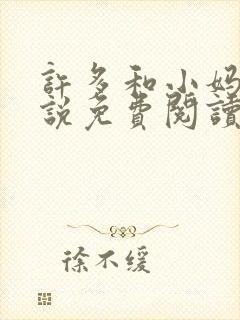 許多和小妈
說免費閱讀
徐不缓